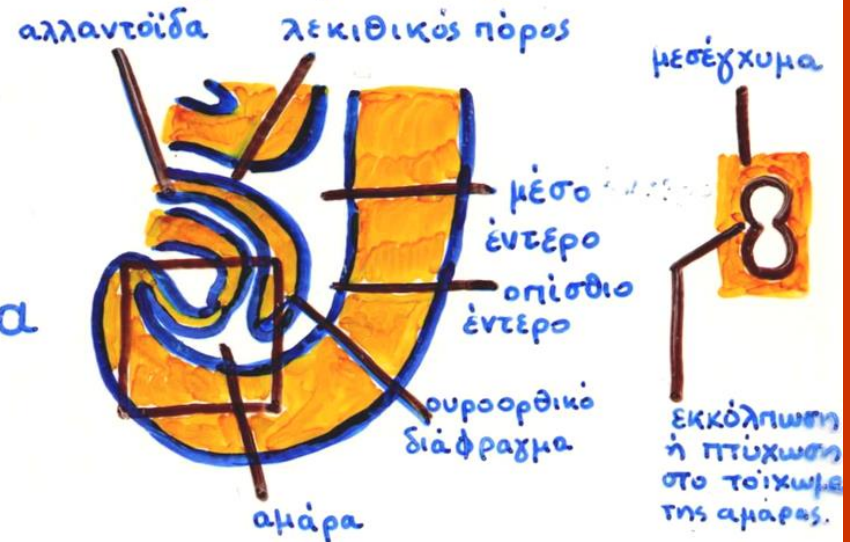 αλλαντοΐδα
λεκιθικός πόρος
μεσέγχυμα
μέσο
έντερο
οπίσθιο
έντερο
α
ουροορθικό
διάφραγμα
αμάρα
εκκόλπωση
ή πτύχωση
στο τοίχωμα
της αμάρας.